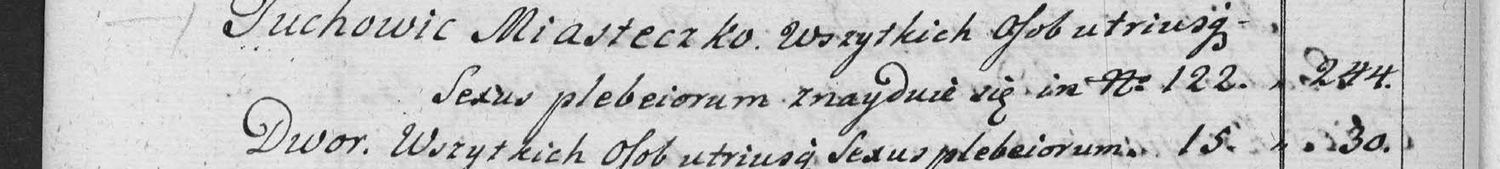 Tuchowic Miasteczko. Wszytkich Osob utriusq̃
Sexus plebeiorum znayduie się in No 122. „ 244.
Dwor. Wszytkich Osob utriusq̃ Sexus plebeiorum. 15. „ 30.